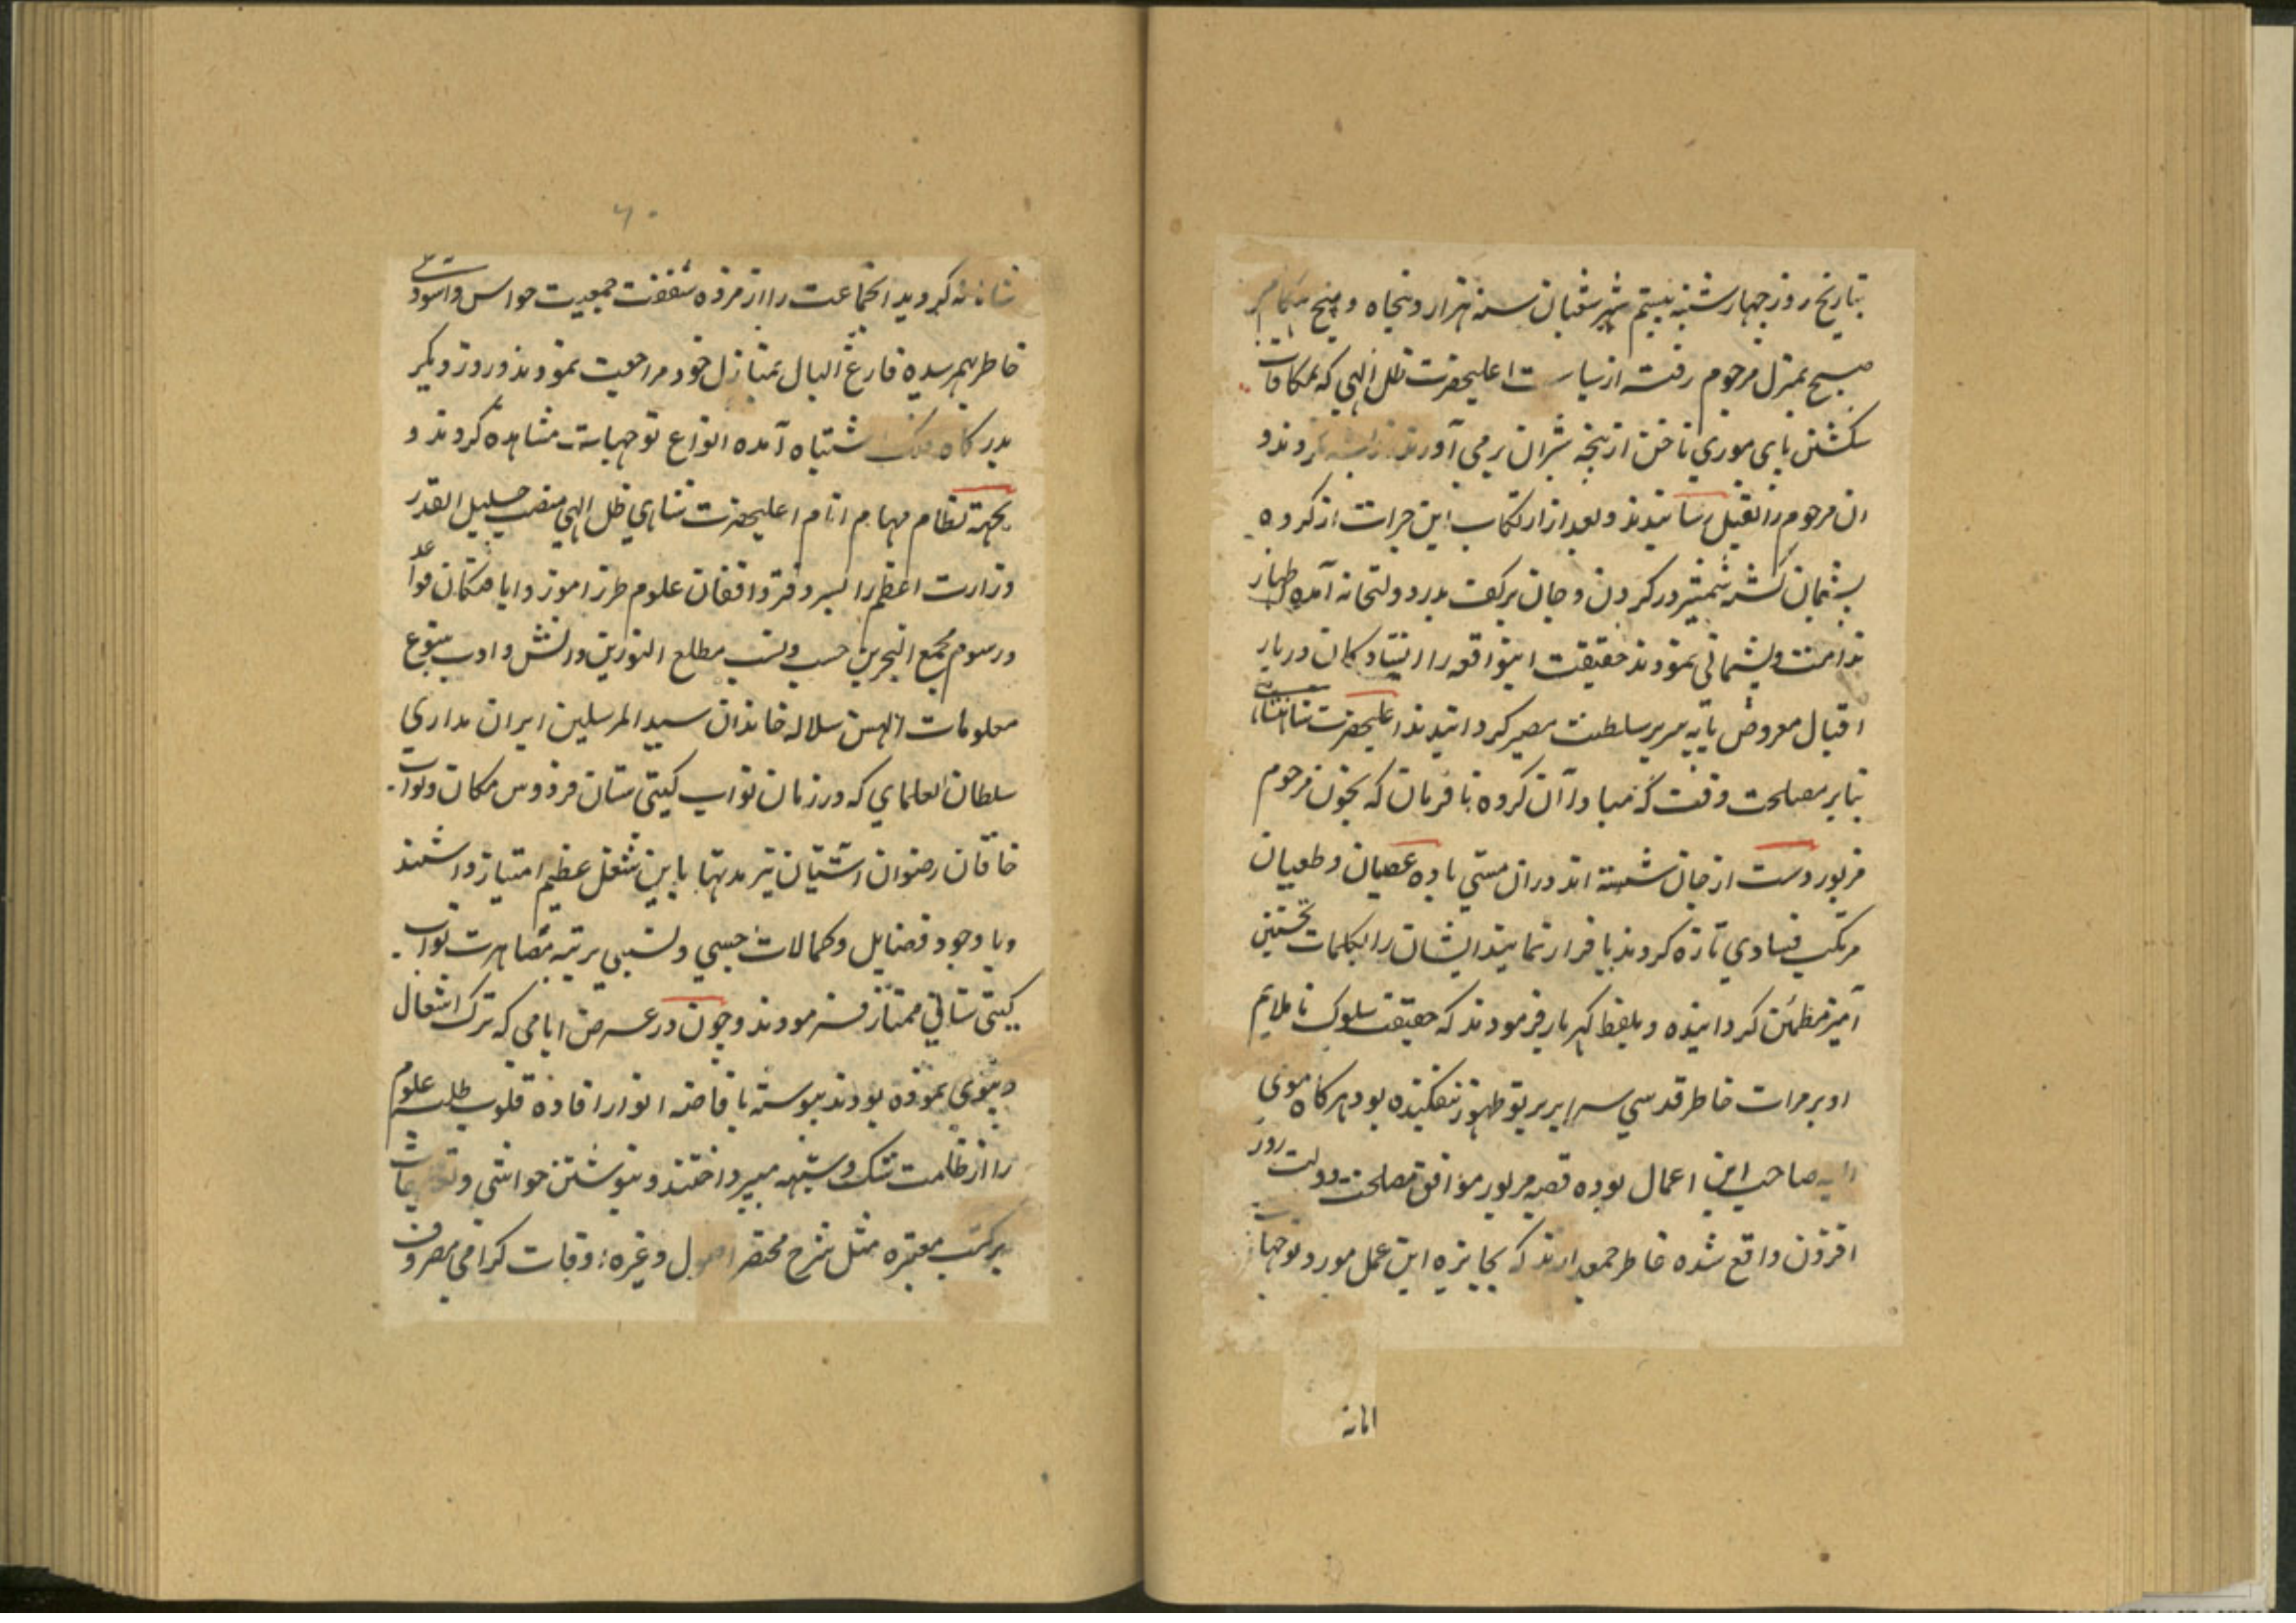 بتاریخ روز چهارشنبه بیستم شهر شعبان سنه هزار و پنجاه و پنج هنگام
صبح بمنزل مرحوم رفته از سیاست اعلیحضرت ظل الهی که بمکافات
شکستن پای موری ناخن از پنجه شیران بر می آورند کردند و
ان مرحوم را بقتل رسانیدند و بعد از ارتکاب این جرات از کرده
پشیمان گشته شمشیر در کردن و جان بر کف بدر دولتخانه آمده اظهار
ندامت و پشیمانی نمودند حقیقت اینواقعه را ایستادکان دربار
اقبال معروض پایه سریر سلطنت مصیر کردانیدند اعلیحضرت شاهنشاهی
بنابر مصلحت وقت که مبادا آن کروه نافرمان که بخون مرحوم
مزبور دست از جان شسته اند در ان مستی باده عصیان و طغیان
مرتکب فسادی تازه کردند یا فرار نمایند ایشان را بکلمات تحسین
آمیز مطمئن کردانیده و بلفظ کهربار فرمودند که حقیقت سلوک ناملایم
او بر مرات خاطر قدسی سرایر پرتو ظهور تفکنده بود هرکاه مومی
الیه صاحب این اعمال بوده قضیه مزبور موافق مصلحت دولت روز
افزون واقع شده خاطر جمعدارند که بجایزه این عمل مورد توجهات
۶۰
شاهانه کردید انجماعت را از مژده شفقت جمعیت حواس و اسودکی
خاطر بهم رسیده فارغ البال بمنازل خود مراجعت نمودند و روز دیکر
بدرکاه فلک اشتباه آمده انواع توجهات مشاهده کردند و
بجهة نظام مهام انام اعلیحضرت شاهی ظل الهی منصب جلیل القدر
وزارت اعظم را بسر دفتر واقفان علوم طرز اموز دانا همکنان قواعد
و رسوم مجمع البحرین حسب و نسب مطلع النورین دانش و ادب ینبوع
معلومات سلاله خاندان سید المرسلین ایران مداری
سلطان العلمای که در زمان نواب کیتی ستان فردوس مکان و نواب
خاقان رضوان اشتیان نیز مدتها باین شغل عظیم امتیاز داشتند
و با وجود فضایل و کمالات حسبی و نسبی برتبه مصاهرت نواب
کیتی ستانی ممتاز و سر فرمودند و چون در عرض ایامی که ترک اشغال
دنیوی نموده بودند پیوسته بافاضه انوار افاده قلوب طلبه علوم
را از ظلمت شک و شبهه میپرداختند و بنوشتن حواشی و تعلیقات
بر کتب معتبره مثل شرح مختصر اصول و غیره اوقات کرامی مصروف